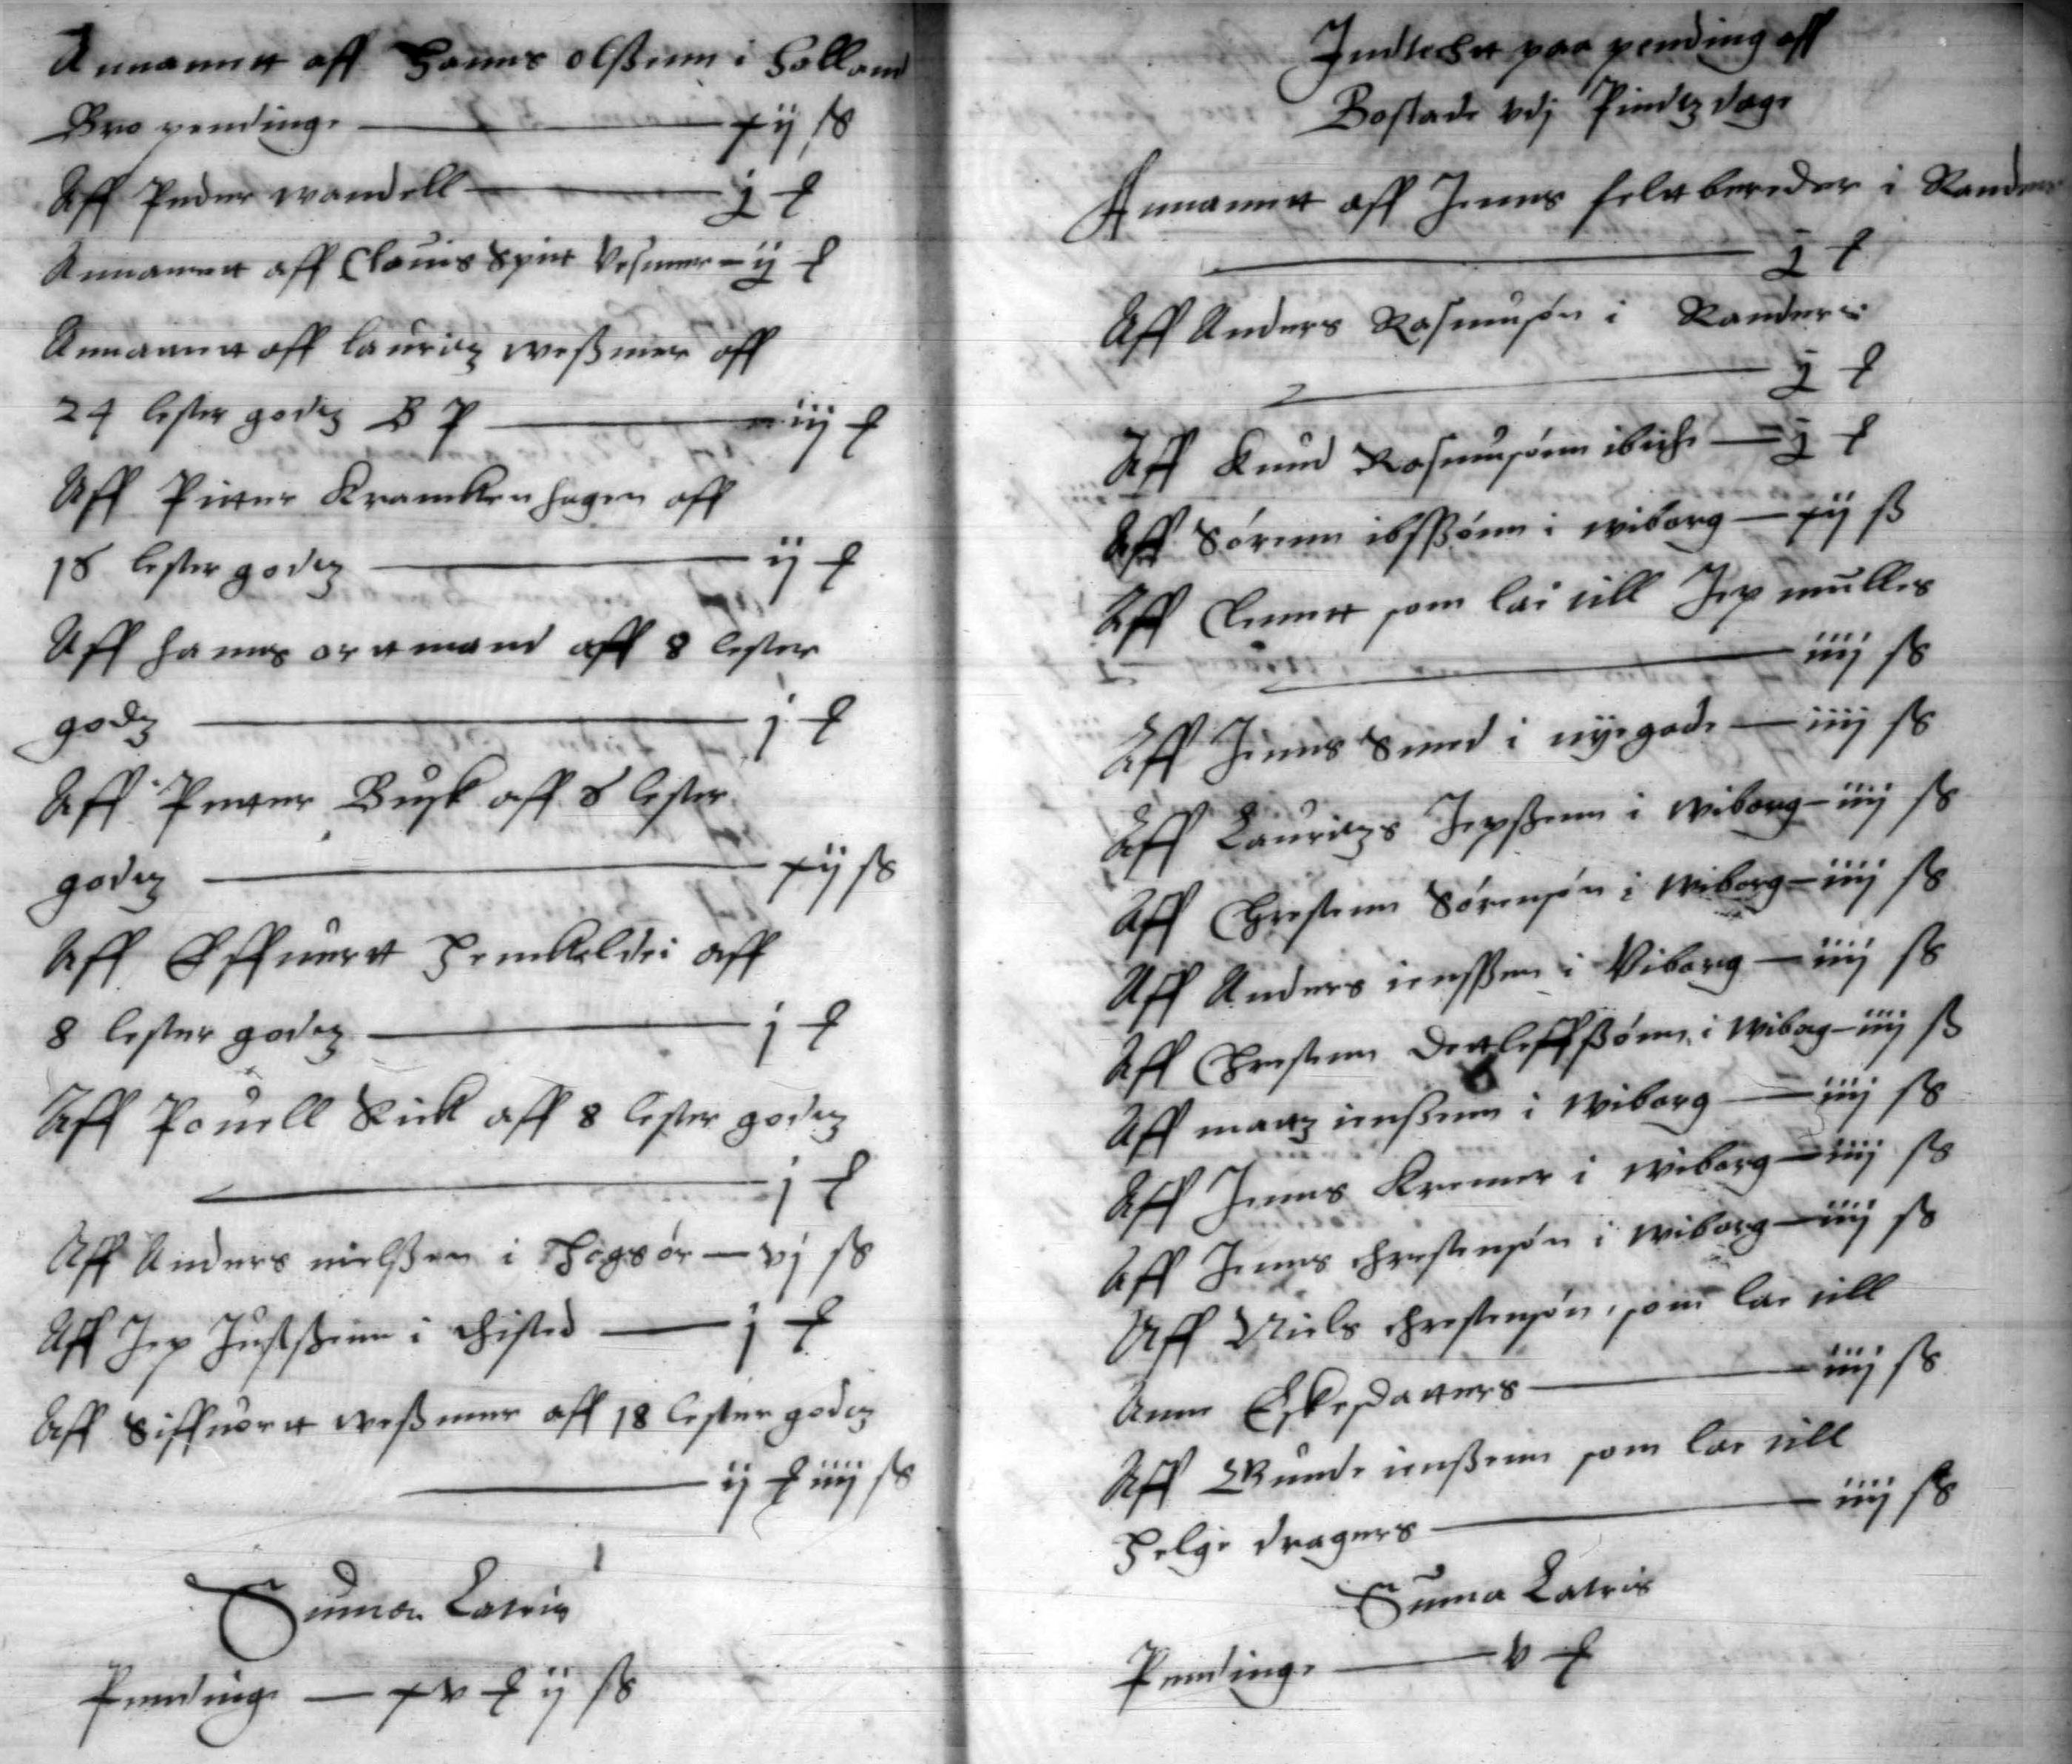 Annammitt aff Hanns olßenn i Holland
Bro pendinge — xij ß
Aff Peder wandell — j ₰
Annammitt aff Clauis Spitt Vesmer — ij ₰
Annammitt aff lauritz weßmer aff
24 lester godtz B P — iij ₰
Aff Pitter Kramckenhagen aff
18 lester godtz — ij ₰
Aff hanns ortmand aff 8 lester
godtz — j ₰
Aff Petter Busk aff 8 lester
godtz — xij ß
Aff Effuertt aff
8 lester godtz — j ₰
Aff Pouell Rick aff 8 lester godtz
— j ₰
Aff Anders nielßen i — vj ß
Aff Jep Justßenn i thisted — j ₰
Aff Siffuertt weßmer aff 18 lester godtz
— ij ₰ iiij ß
Summa Lateris
Pendinge — xv ₰ ij ß
Indtecht paa pending aff
Bostade vdj Pindtz dage
Annammitt aff Jenns feltbereder i Randers
— j ₰
Aff Anders Rasmusøn i Randers
— j ₰
Aff Knud Rasmusønn ibiche — j ₰
Aff Sørenn ibsßønn i wiborg — xij ß
Aff Clemett som lai till Jep mulles
— iiij ß
Aff Jenns Smed i nyegade — iiij ß
Aff Lauritzs Jepßenn i wiborg — iiij ß
Aff Chrestenn Sørensøn i wiborg — iiij ß
Aff Anders iensßen i Viborg — iiij ß
Aff Chrestenn Dettleffßønn i wiborg — iiij ß
Aff mattz iensßenn i wiborg — iiij ß
Aff Jenns Kremer i wiborg — iiij ß
Aff Jenns chrestensøn i wiborg — iiij ß
Aff Niels chrestensøn, som lae till
Anne Eskesdatters — iiij ß
Aff Gunde iensßenn som lae till
Helge dragers — iiij ß
Summa Lateris
Pendinge — v ₰